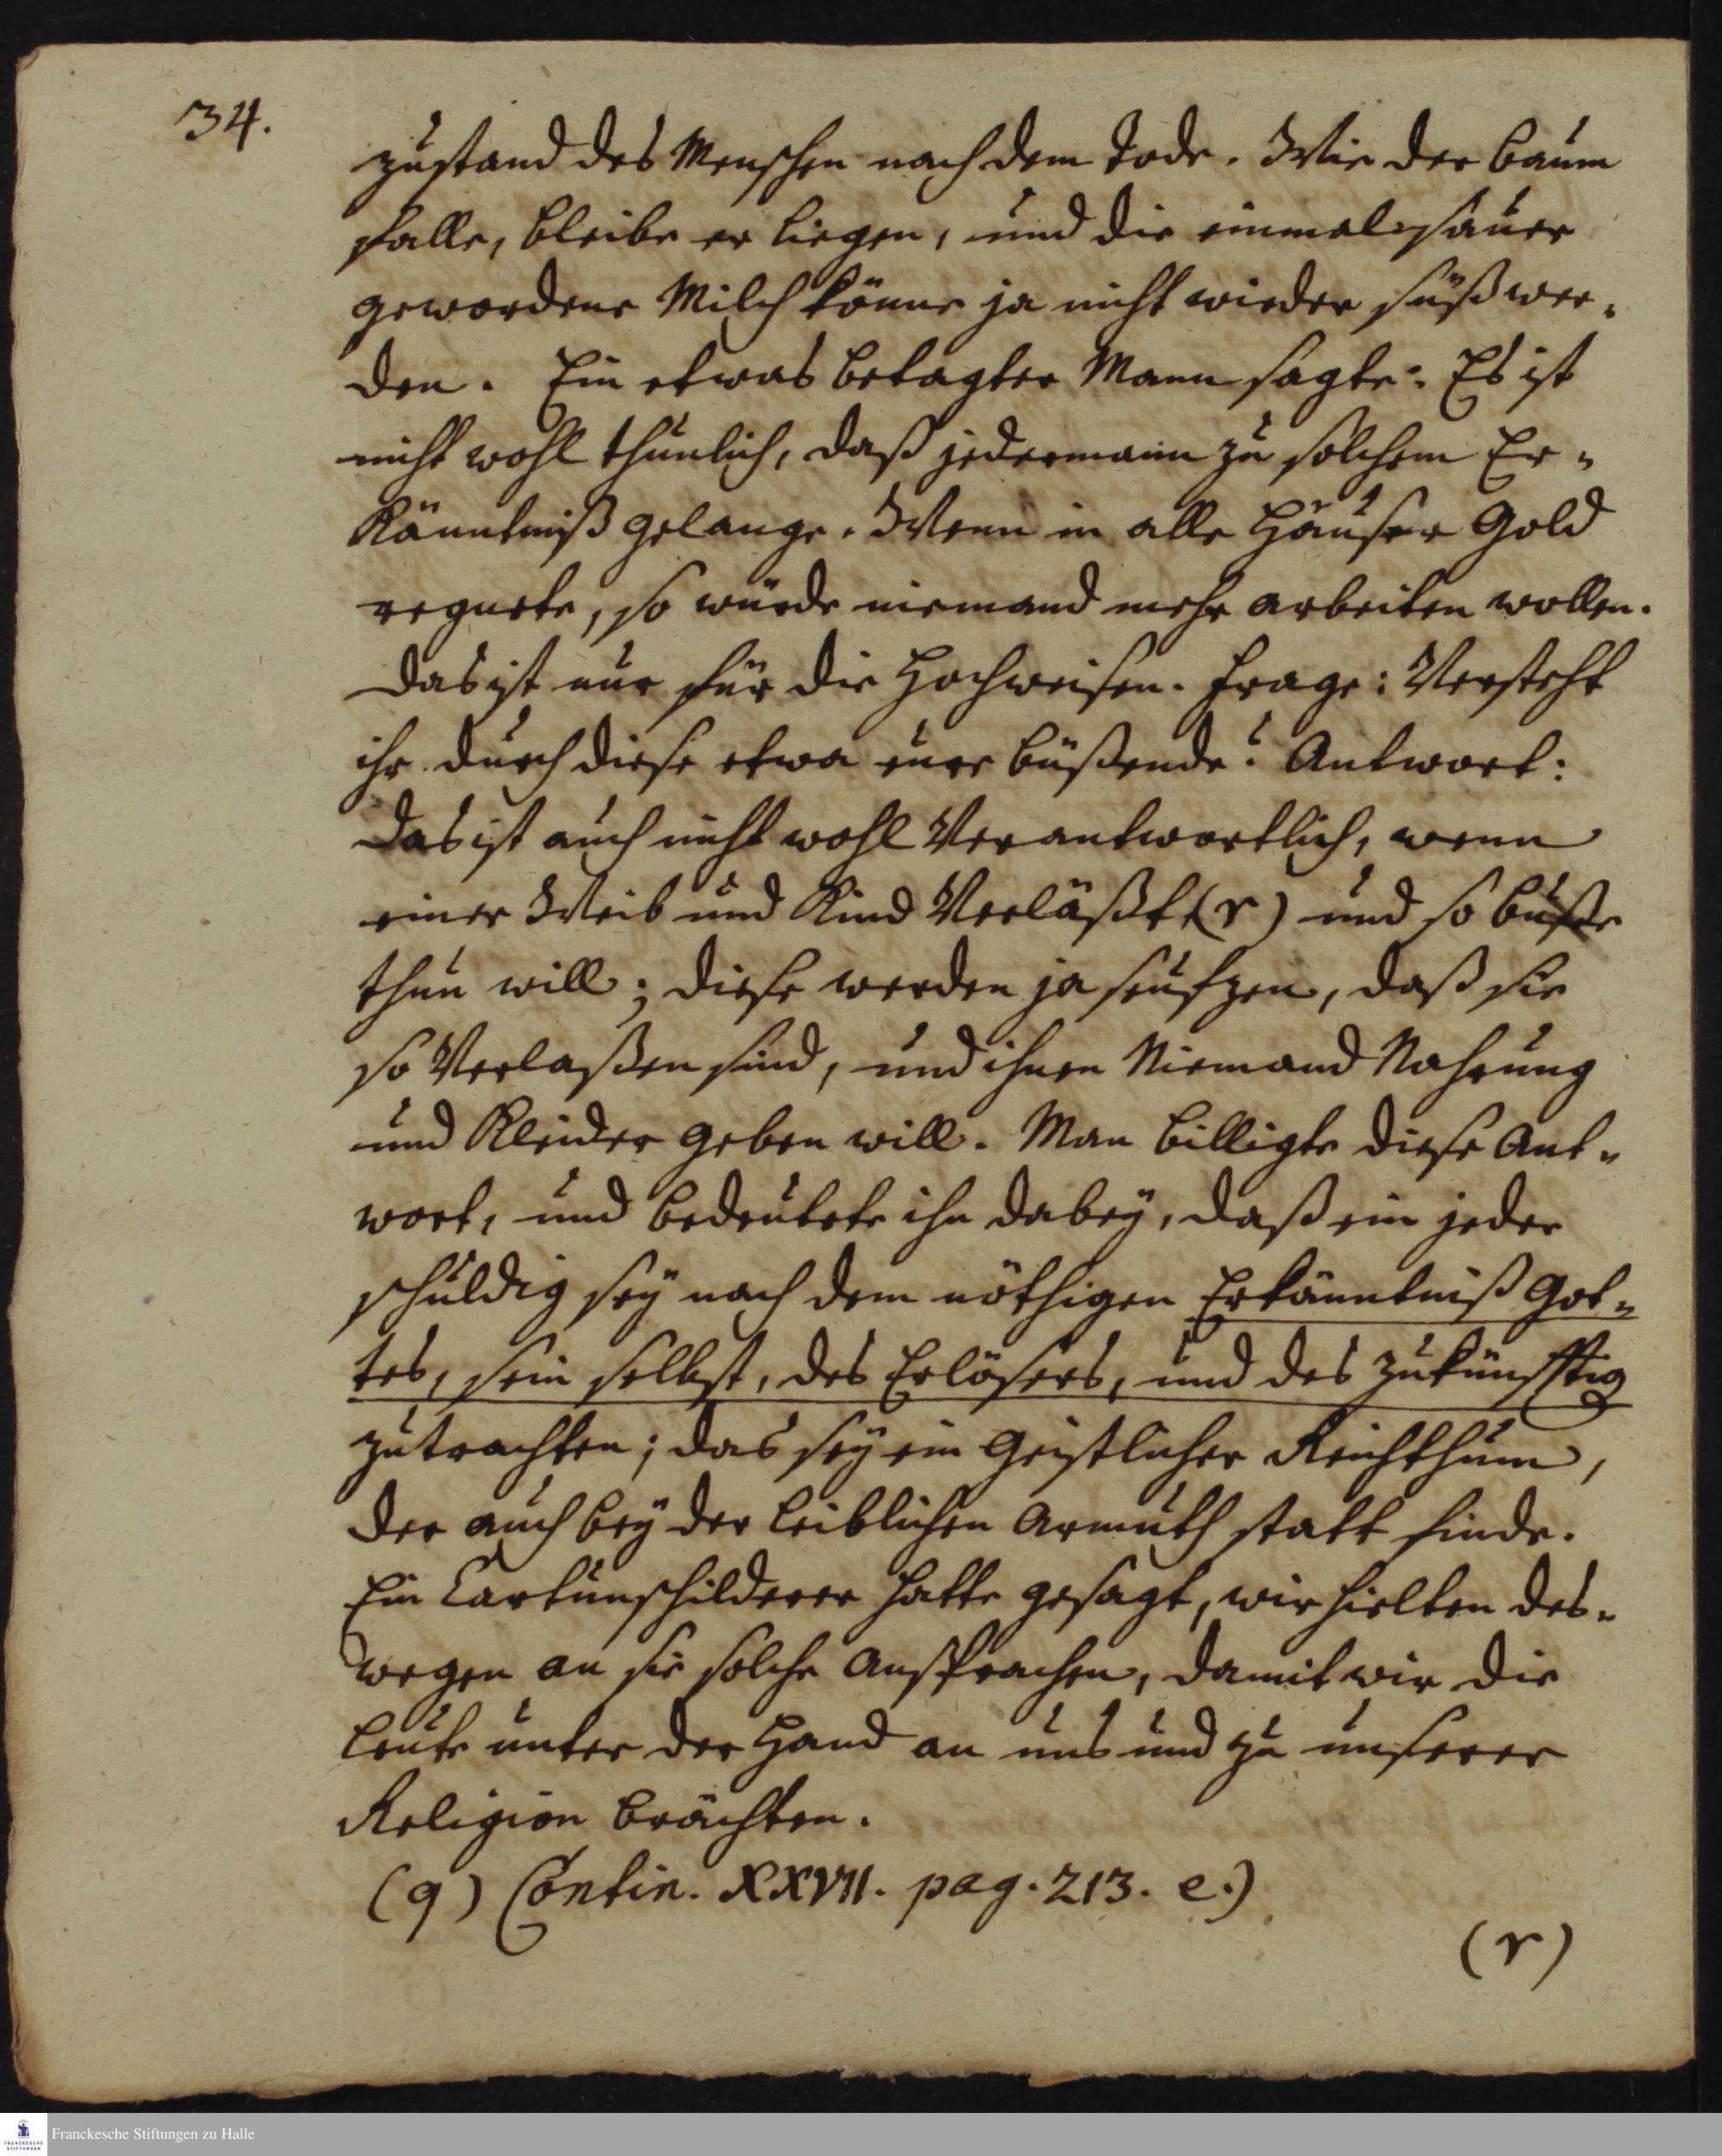 34.
zustand des Menschen nach dem Tode. Wie der Baum
falle, bleibe er liegen, und die einmal sauer
gewordene Milch könne ja nicht wieder süß wer-
den. Ein etwas betagter Mann sagte: Es ist
nicht wohl thunlich, daß jedermann zu solchem Er-
känntniß gelange. Wenn in alle Häuser Gold
regnete, so würde niemand mehr arbeiten wollen.
Das ist nur für die Hochweisen. Frage: Versteht
ihr durch diese etwa eure büßende? Antwort:
Das ist auch nicht wohl Verantwortlich, wenn
einer Weib und Kind Verläßt (r) und so buße
thun will; diese werden ja seufzen, daß sie
so Verlaßen sind, und ihnen Niemand Nahrung
und Kleider geben will. Man billigte diese Ant-
wort, und bedeutete ihn dabey, daß ein jeder
schuldig sey nach dem nöthigen Erkänntniß Got-
tes, sein selbst, des Erlösers, und des zukünfftig
zutrachten; das sey ein Geistlicher Reichthum,
der auch bey der leiblichen Armuth statt finde.
Ein Cartunschilderer hatte gesagt, wir hielten des-
wegen an sie solche Ansprachen, damit wir die
Leute unter der Hand an uns und zu unserer
Religion brächten.
(q) Contin. XXVII. pag. 213. e.)
(r)
Franckesche Stiftungen zu Halle
FRANCKESCHE
STIFTUNGEN